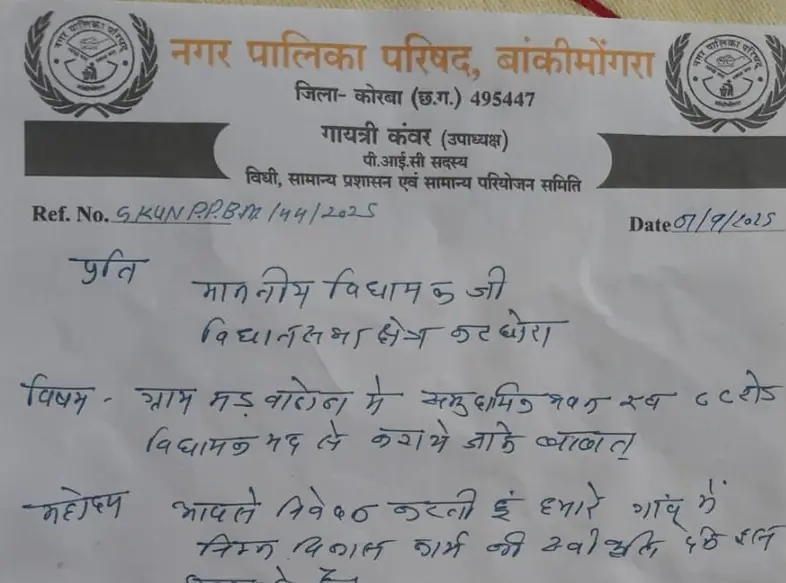 नगर पालिका परिषद, बांकीमोंगरा
जिला- कोरबा (छ.ग.) 495447
गायत्री कंवर (उपाध्यक्ष)
पी.आई.सी सदस्य
विधी, सामान्य प्रशासन एवं सामान्य परियोजन समिति
Ref. No. GKUNP.P.B.M/44/2025
Date 01/9/2025
प्रति
माननीय विधायक जी
विधानसभा क्षेत्र कटघोरा
विषय - ग्राम मड़वाढोढा मे समुदायिक भवन एव CC रोड
विधायक मद से कराये जाने बाबत्
महोदय आपसे निवेदन करती हूं हमारे गांव में
निम्न विकास कार्य की स्वीकृति देने